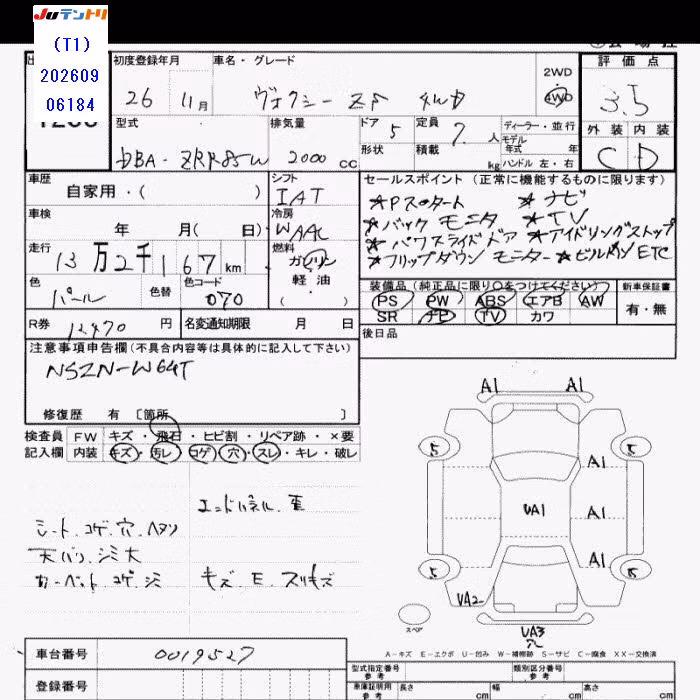 Juテントリ
(T1)
202609
06184
初度登録年月
車名・グレード
26 11月
ヴォクシー ZS 4WD
2WD
4WD
評価点
3.5
外装 内装
C D
型式
DBA-ZRR85W
排気量
2000 cc
ドア 5
定員 7 人
形状
積載 kg
ディーラー・並行
モデル年式 年
ハンドル 左・右
車歴
自家用・( )
シフト
IAT
車検
年 月( 日)
冷房
WAAC
走行
13万2千167 km
燃料
ガソリン
軽油
色
パール
色替
色コード
070
R券 12470 円
名変通知期限 月 日
セールスポイント (正常に機能するものに限ります)
★Pスタート ★ナビ
★バックモニタ ★TV
★パワスライドドア ★アイドリングストップ
★フリップダウンモニター ★ビルドインETC
装備品(純正品に限り○をつけてください)
新車保証書
PS PW ABS エアB AW
SR ナビ TV カワ
有・無
後日品
注意事項申告欄(不具合内容等は具体的に記入して下さい)
NSZN-W64T
修復歴 有 [箇所 ]
検査員 FW キズ・飛石・ヒビ割・リペア跡・×要
記入欄 内装 キズ・汚レ・コゲ・穴・スレ・キレ・破レ
エンドパネル 歪
シート コゲ 穴 ヘタリ
天バリ シミ大
カーペット コゲ シミ
キズ E スリキズ
A1 A1
5 5
A1
UA1 A1
A1
5 5
UA2
スペア
UA3
穴
A-キズ E-エクボ U-凹み W-補修跡 S-サビ C-腐食 XX-交換済
車台番号 0019527
登録番号
型式指定番号
参考
類別区分番号
参考
車庫証明用
参考
長さ cm 幅 cm 高さ cm